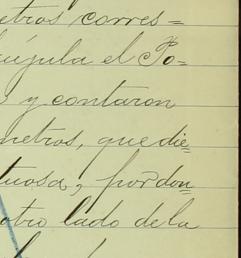 etros corres=
újula el Po-
y contaron
metros, que die=
tuosa, por don=
otro lado de la